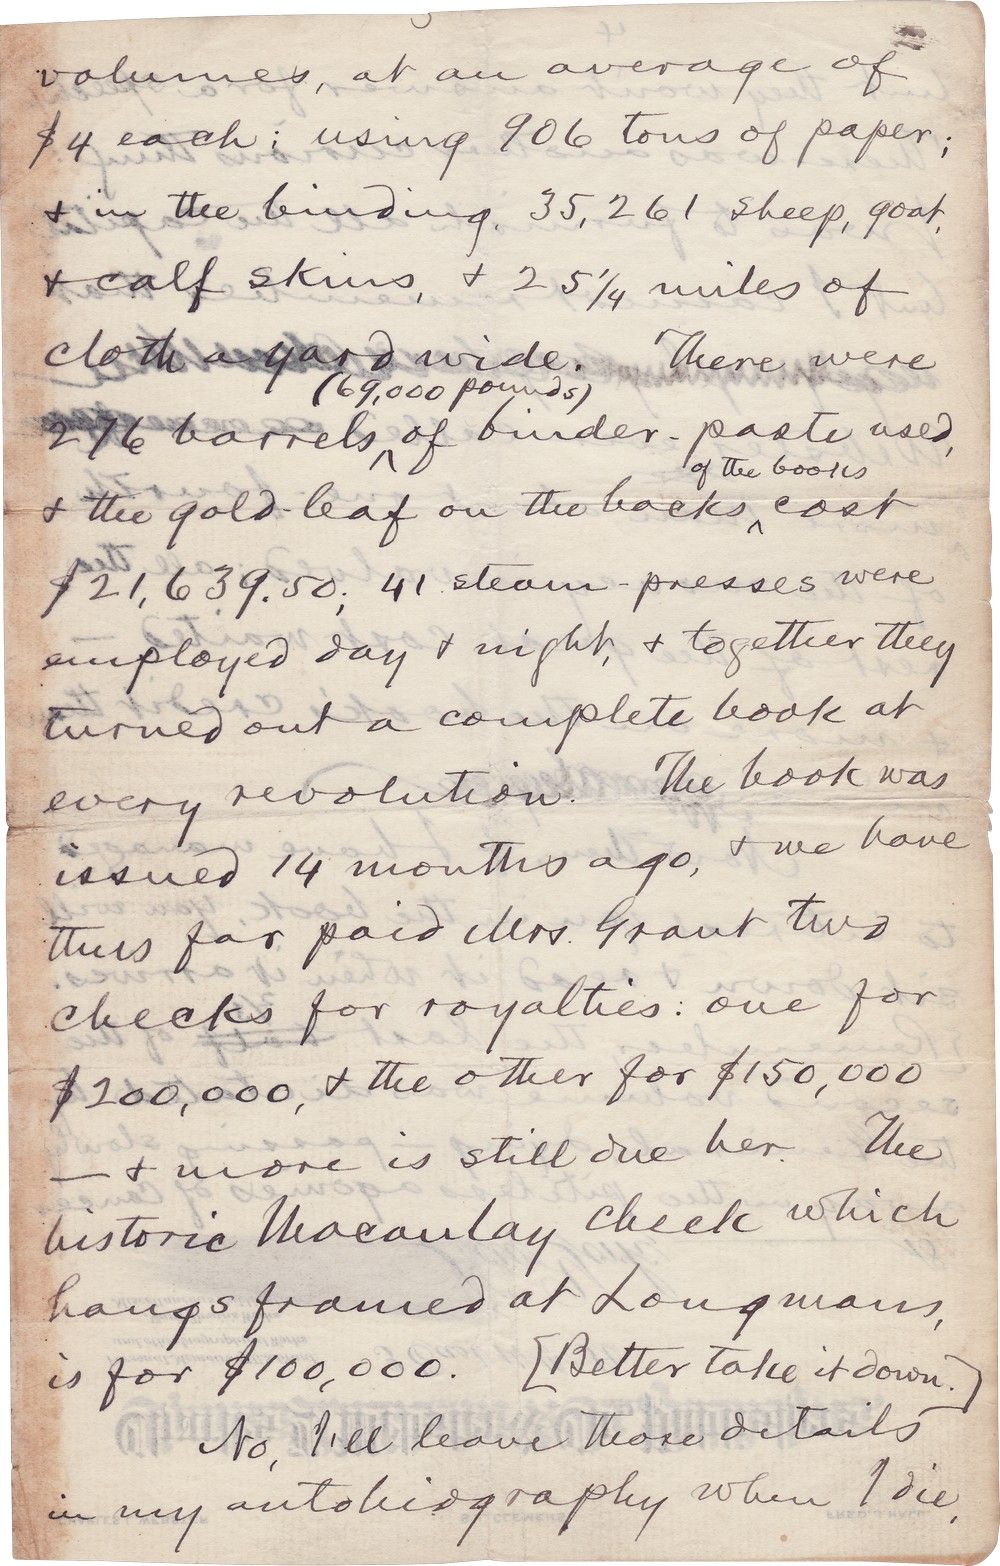 volumes, at an average of
$4 each; using 906 tons of paper;
& in the binding, 35,261 sheep, goat,
& calf skins, & 25 1/4 miles of
cloth a yard wide. There were
(69,000 pounds)
276 barrels ^ of binder-paste used,
of the books
& the gold-leaf on the backs ^ cost
$21,639.50; 41 steam-presses were
employed day & night, & together they
turned out a complete book at
every revolution. The book was
issued 14 months ago, & we have
thus far paid Mrs. Grant two
checks for royalties: one for
$200,000, & the other for $150,000
— & more is still due her. The
historic Macaulay check which
hangs framed at Longmans,
is for $100,000. [Better take it down.]
No, I'll leave those details
in my autobiography when I die,